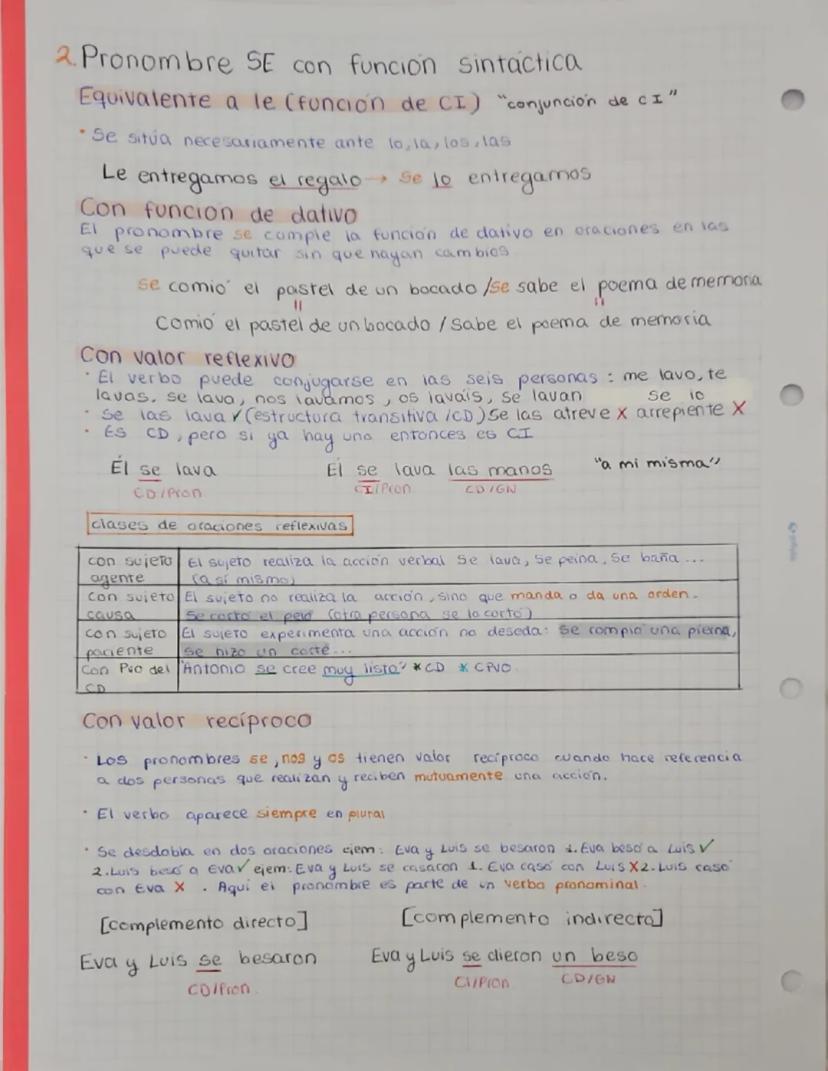 2. Pronombre SE con función sintáctica
Equivalente a le (función de CI) "conjunción de CI"
· Se sitúa necesariamente ante lo, la, los, las
Le entregamos el regalo → Se lo entregamos
Con función de dativo
El pronombre se cumple la función de dativo en oraciones en las
que se puede quitar sin que hayan cambios
Se comió el pastel de un bocado / Se sabe el poema de memoria
Comió el pastel de un bocado / Sabe el poema de memoria
Con valor reflexivo
· El verbo puede conjugarse en las seis personas : me lavo, te
lavas, se lava, nos lavamos, os laváis, se lavan
se lo
· Se las lava ✓ (estructura transitiva /CD) Se las atreve X arrepiente X
· Es CD, pero si ya hay uno entonces es CI
Él se lava
Él se lava las manos
"a mi misma"
CD/Pron
CI/Pron
CD/GN
clases de oraciones reflexivas
con sujeto agente
El sujeto realiza la acción verbal Se lava, Se peina, Se baña ...
(a sí mismo)
con sujeto causa
El sujeto no realiza la acción, sino que manda o da una orden.
Se cortó el pelo (otra persona se lo cortó)
con sujeto paciente
El sujeto experimenta una acción no deseda: Se rompió una pierna,
se hizo un corte...
Con Pvo del CD
"Antonio se cree muy listo" * CD * CPVO
Con valor recíproco
· Los pronombres se, nos y os tienen valor recíproco cuando hace referencia
a dos personas que realizan y reciben mutuamente una acción.
· El verbo aparece siempre en plural
· Se desdobla en dos oraciones ejem: Eva y Luis se besaron 1. Eva besó a Luis ✓
2. Luis besó a Eva ✓ ejem: Eva y Luis se casaron 1. Eva casó con Luis X 2. Luis casó
con Eva X . Aquí el pronombre es parte de un verbo pronominal.
[complemento directo]
[complemento indirecto]
Eva y Luis se besaron
Eva y Luis se dieron un beso
CD/Pron
CI/Pron
CD/GN